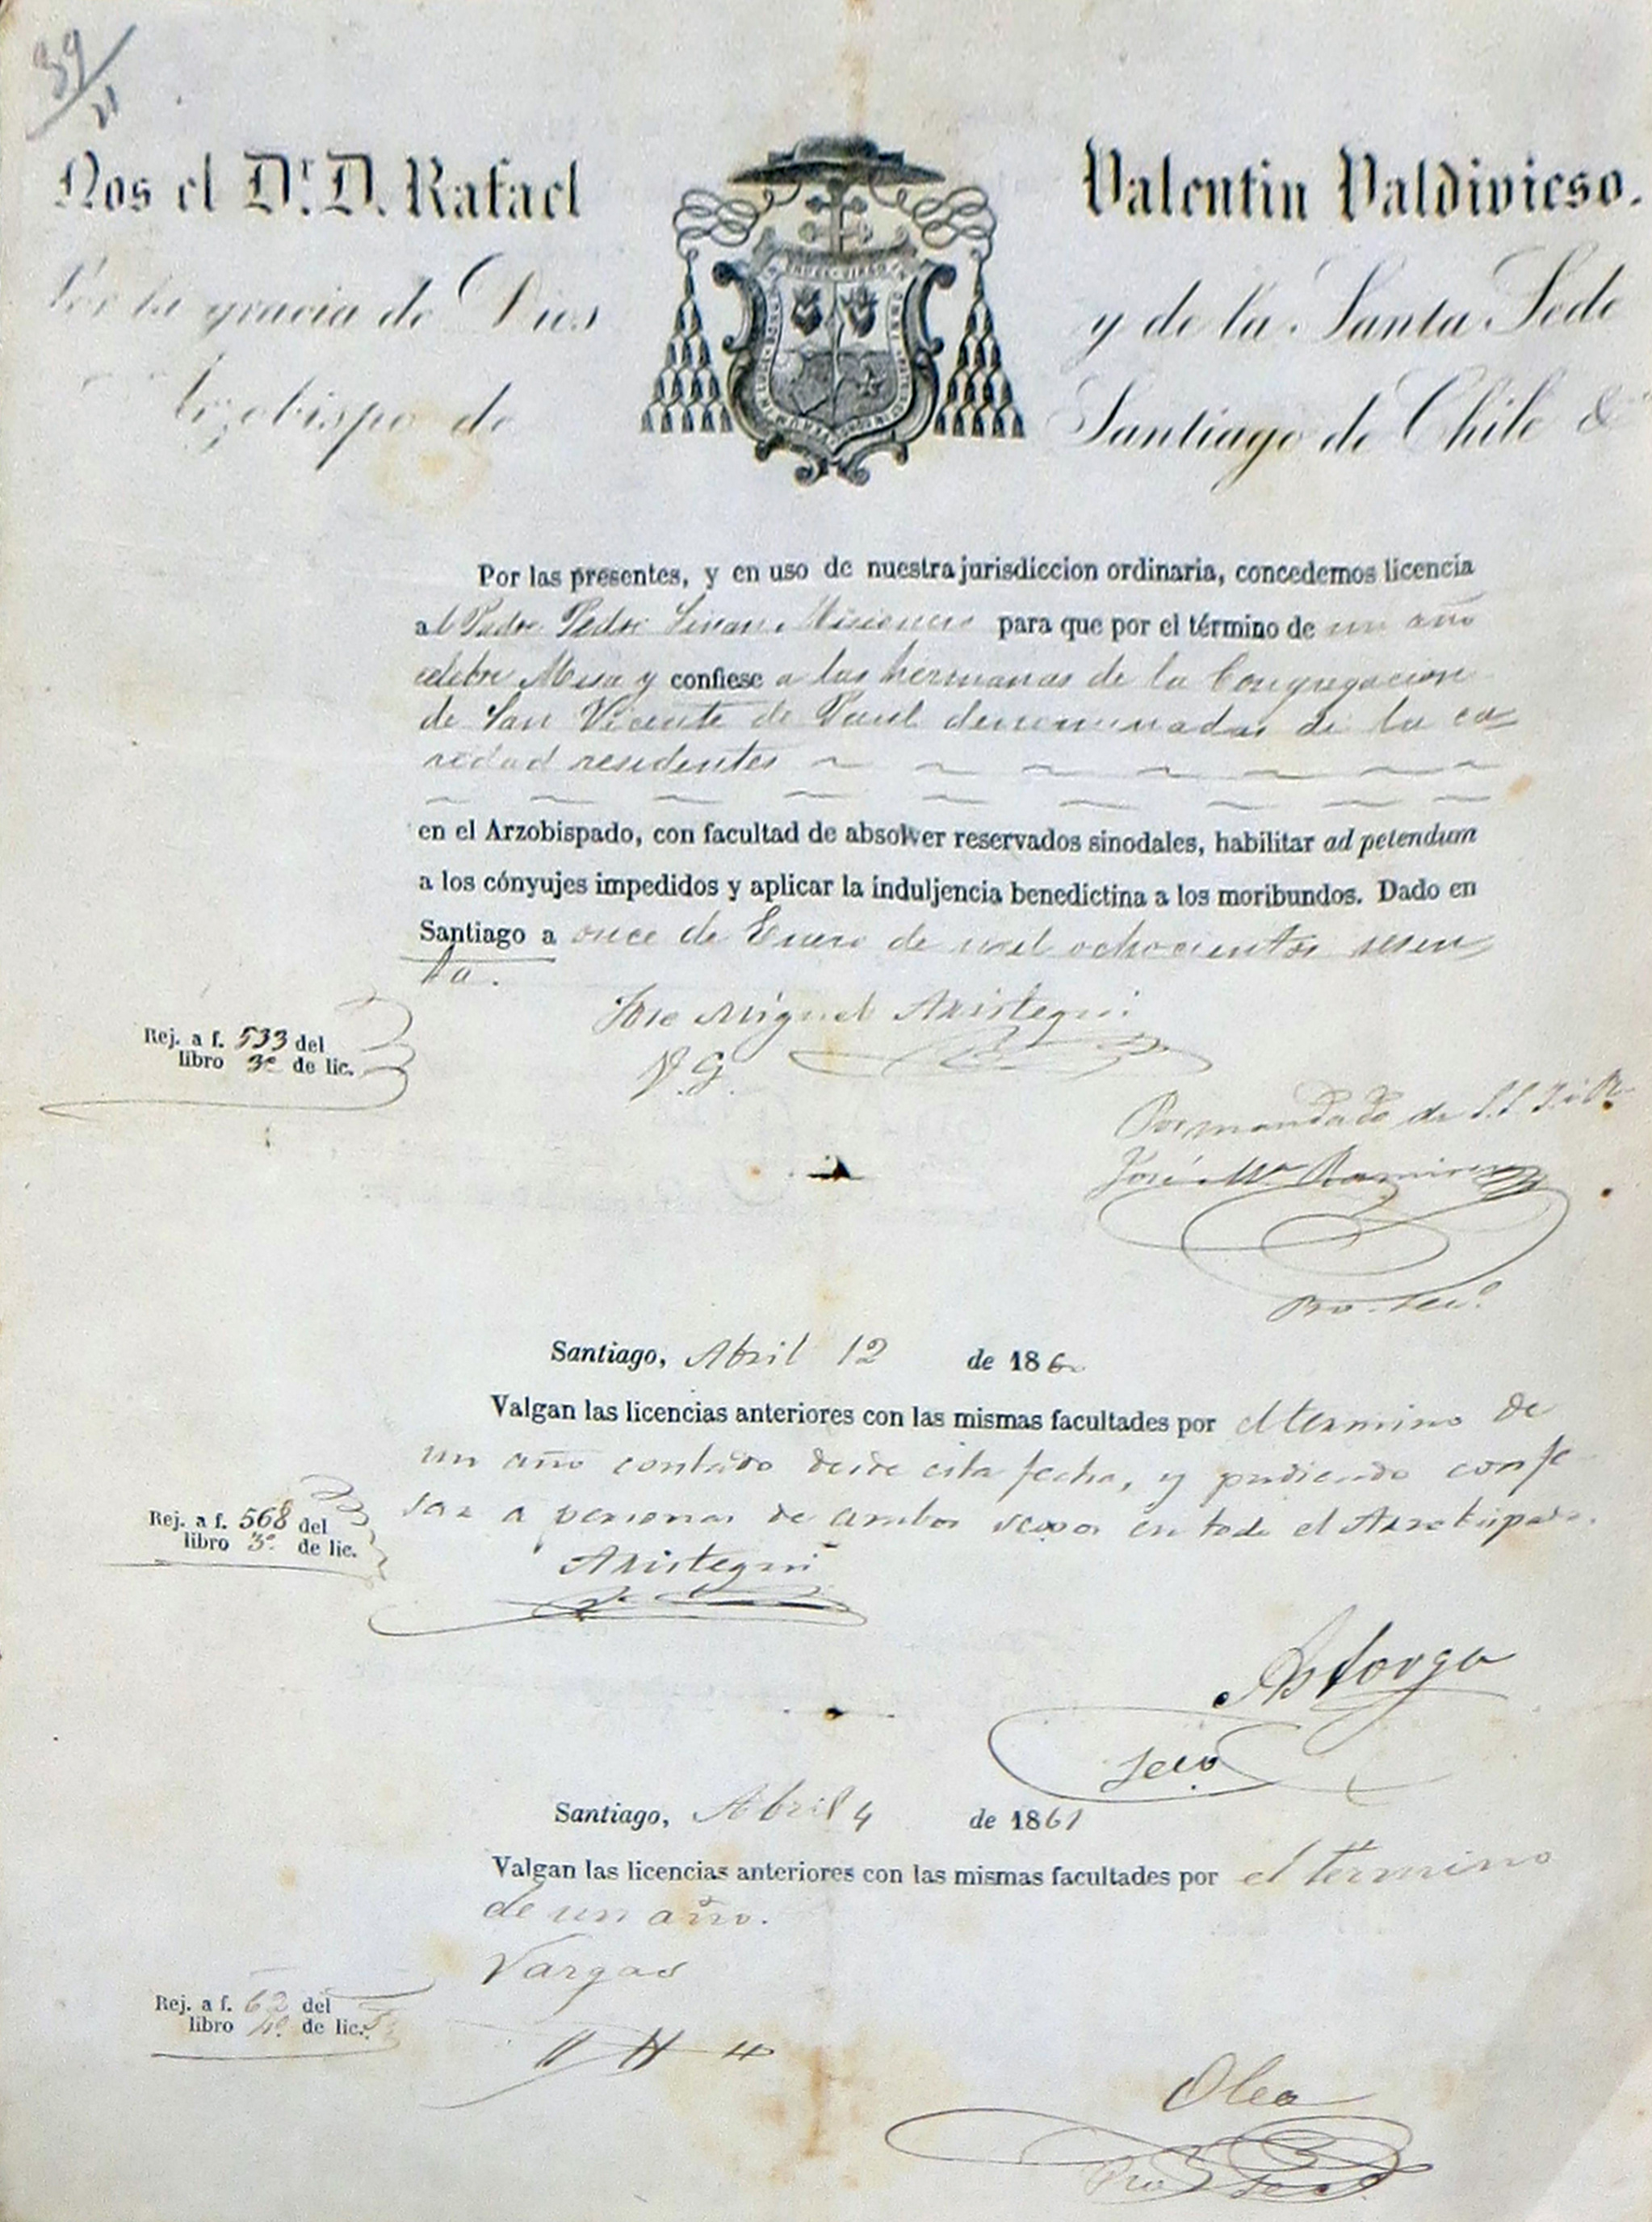 39/21
Nos el Dr. D. Rafael Valentin Valdivieso.
Por la gracia de Dios y de la Santa Sede
Arzobispo de Santiago de Chile &
Por las presentes, y en uso de nuestra jurisdiccion ordinaria, concedemos licencia
al Padre Pedro Misionero para que por el término de un año
celebre Misa y confiese a las hermanas de la Congregacion
de San Vicente de Paul denominadas de la ca=
redad residentes
en el Arzobispado, con facultad de absolver reservados sinodales, habilitar ad petendum
a los cónyujes impedidos y aplicar la induljencia benedictina a los moribundos. Dado en
Santiago a once de Enero de mil ochocientos sesen
ta.
Jose Miguel Aristegui
V. G.
Rej. a f. 533 del
libro 3º de lic.
Por mandado de S.S.I. i R.
José Mª Ramirez
Pro-Secº
Santiago, Abril 12 de 1860
Valgan las licencias anteriores con las mismas facultades por el termino de
un año contado desde esta fecha, y pudiendo confe
sar a personas de ambos sexos en todo el Arzobispado.
Rej. a f. 568 del
libro 3º de lic.
Aristegui
Astorga
Secº
Santiago, Abril 4 de 1861
Valgan las licencias anteriores con las mismas facultades por el termino
de un año.
Vargas
Rej. a f. 62 del
libro 4º de lic.
Olea
Pro Secº